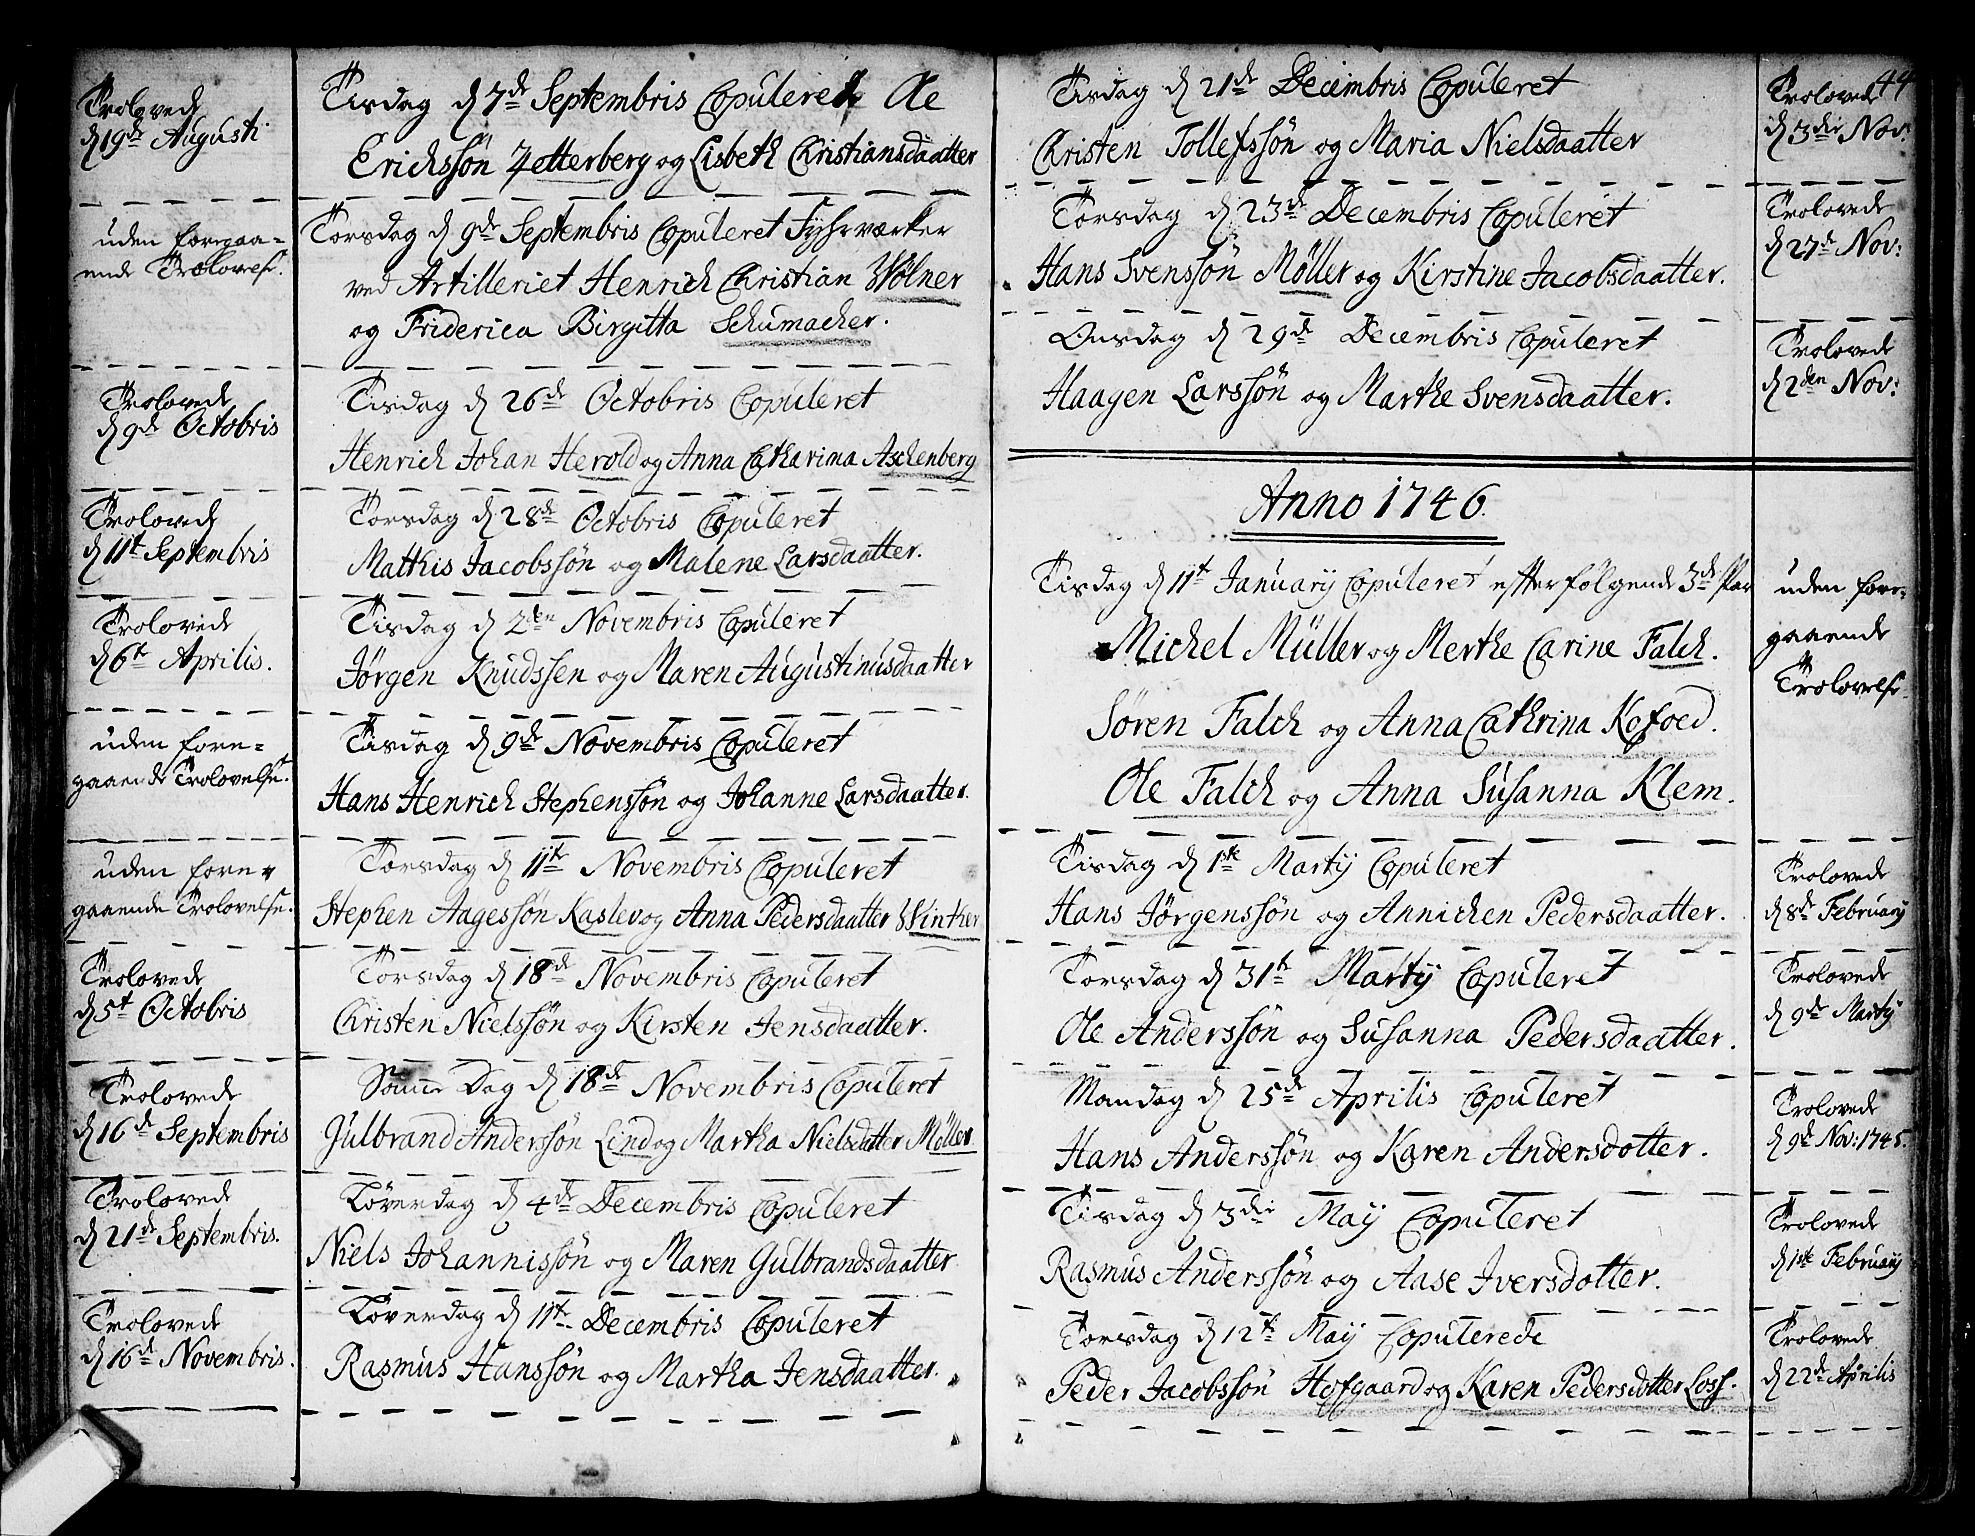 Trolovede
d 19de Augusti
Tisdag d 7de Septembris Copuleret Ole
Erichssön Zetterberg og Lisbeth Christiansdaatter
uden foregaa=
ende Trolovelse.
Torsdag d 9de Septembris Copuleret Fyhrværker
ved Artilleriet Henrich Christian Wölner
og Friderica Birgitta Schumacher.
Trolovede
d 9de Octobris
Tisdag d 26de Octobris Copuleret
Henrich Johan Herold og Anna Catharina Aschenberg
Trolovede
d 11t Septembris
Torsdag d 28de Octobris Copuleret
Mathis Jacobssön og Malene Larsdaatter.
Trolovede
d 6t Aprilis.
Tisdag d 2den Novembris Copuleret
Jörgen Knudssen og Maren Augustinusdaatter
uden fore=
gaaende Trolovelse.
Tisdag d 9de Novembris Copuleret
Hans Henrich Stephenssön og Johanne Larsdaatter.
uden fore=
gaaende Trolovelse.
Torsdag d 11te Novembris Copuleret
Stephen Aagessön Kaslev og Anna Pedersdaatter Winther
Trolovede
d 5t Octobris
Torsdag d 18de Novembris Copuleret
Christen Nielssön og Kirsten Jensdaatter.
Trolovede
d 16de Septembris
Samme Dag d 18de Novembris Copuleret
Gulbrand Anderssön Lind og Martha Nielsdatter Möller
Trolovede
d 21de Septembris.
Löverdag d 4de Decembris Copuleret
Niels Johannissön og Maren Gulbrandsdaatter
Trolovede
d 16de Novembris.
Löverdag d 11te Decembris Copuleret
Rasmus Hanssön og Martha Jensdaatter.
44
Tisdag d 21de Decembris Copuleret
Christen Tollefssön og Maria Nielsdaatter
Trolovede
d 3die Nov:
Torsdag d 23de Decembris Copuleret
Hans Svenssön Möller og Kirstine Jacobsdaatter.
Trolovede
d 27de Nov:
Onsdag d 29de Decembris Copuleret
Haagen Larssön og Marthe Svensdaatter.
Trolovede
d 2den Nov:
Anno 1746.
Tisdag d 11t Januarij Copuleret efterfölgende 3de Par
Michel Müller og Merthe Carine Falch.
Sören Falch og Anna Cathrina Kofoed.
Ole Falch og Anna Susanna Klem.
uden fore=
gaaende
Trolovelse.
Tisdag d 1ste Martij Copuleret
Hans Jörgenssön og Annichen Pedersdaatter.
Trolovede
d 8de Februarij
Torsdag d 31te Martij Copuleret
Ole Anderssön og Susanna Pedersdaatter.
Trolovede
d 9de Martij
Mandag d 25de Aprilis Copuleret
Hans Anderssön og Karen Andersdotter.
Trolovede
d 9de Nov: 1745.
Tisdag d 3die Maij Copuleret
Rasmus Anderssön og Aase Iversdotter.
Trolovede
d 1ste Februarij
Torsdag d 12te Maij Copulerede
Peder Jacobssön Hofgaard og Karen Pedersdotter Loss.
Trolovede
d 22de Aprilis